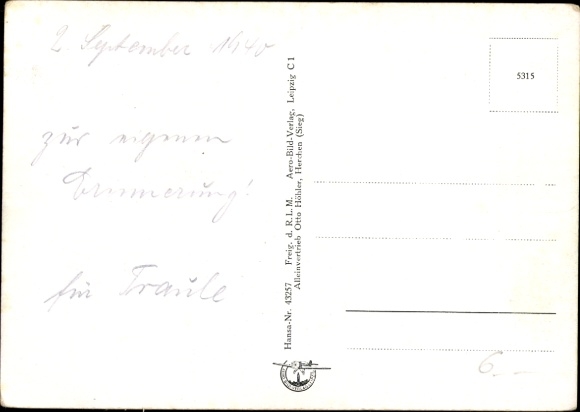 2. September 1940
zur eigenen
Erinnerung!
für Traule
Hansa-Nr. 43257 Freig. d. R.L.M. Aero-Bild-Verlag, Leipzig C 1
Alleinvertrieb Otto Höhler, Herchen (Sieg)
5315
6.–